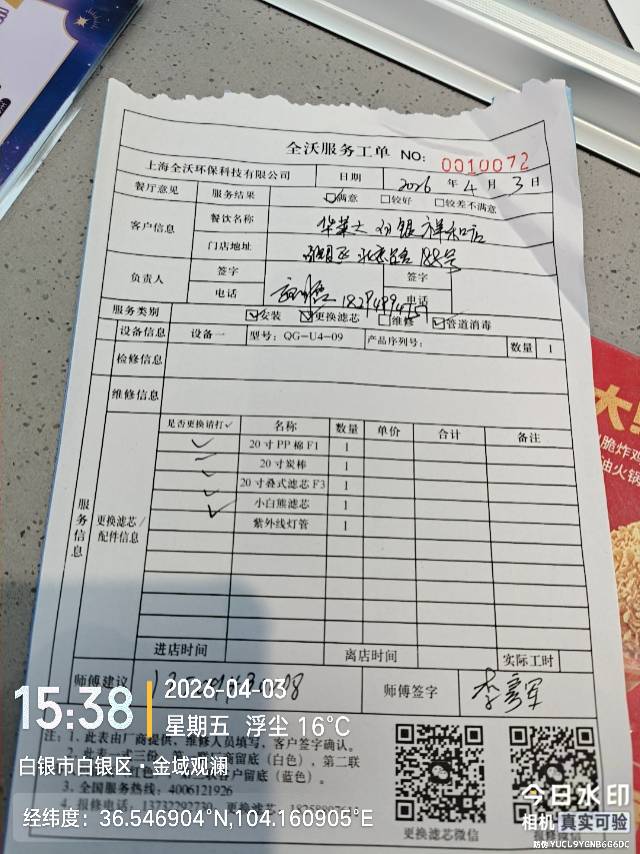 全沃服务工单 NO: 0010072
上海全沃环保科技有限公司 日期 2026 年 4 月 3 日
餐厅意见 服务结果 满意 较好 较差不满意
客户信息 餐饮名称 华莱士白银祥和店
门店地址 188号
负责人 签字 签字
电话 电话
服务类别 安装 更换滤芯 维修 管道消毒
设备信息 设备一 型号: QG-U4-09 产品序列号: 数量 1
检修信息
维修信息
服务信息 更换滤芯/配件信息
是否更换请打✓ 名称 数量 单价 合计 备注
✓ 20寸PP棉F1 1
20寸炭棒 1
✓ 20寸叠式滤芯F3 1
✓ 小白熊滤芯 1
紫外线灯管 1
进店时间 离店时间 实际工时
师傅建议 师傅签字
注: 1、此表由厂商提供, 维修人员填写, 客户签字确认。
2、此表一式三份, 第一联厂商留底(白色), 第二联
客户留底(蓝色)。
3、全国服务热线: 4006121926
4、报修电话: 13732292730、更换滤芯:
更换滤芯微信 报修微信
15:38 2026-04-03
星期五 浮尘 16°C
白银市白银区 · 金域观澜
经纬度: 36.546904°N,104.160905°E
今日水印
相机 真实可验
防伪 YUCL9YGNB6G6DC
大
脆炸鸡
油火锅